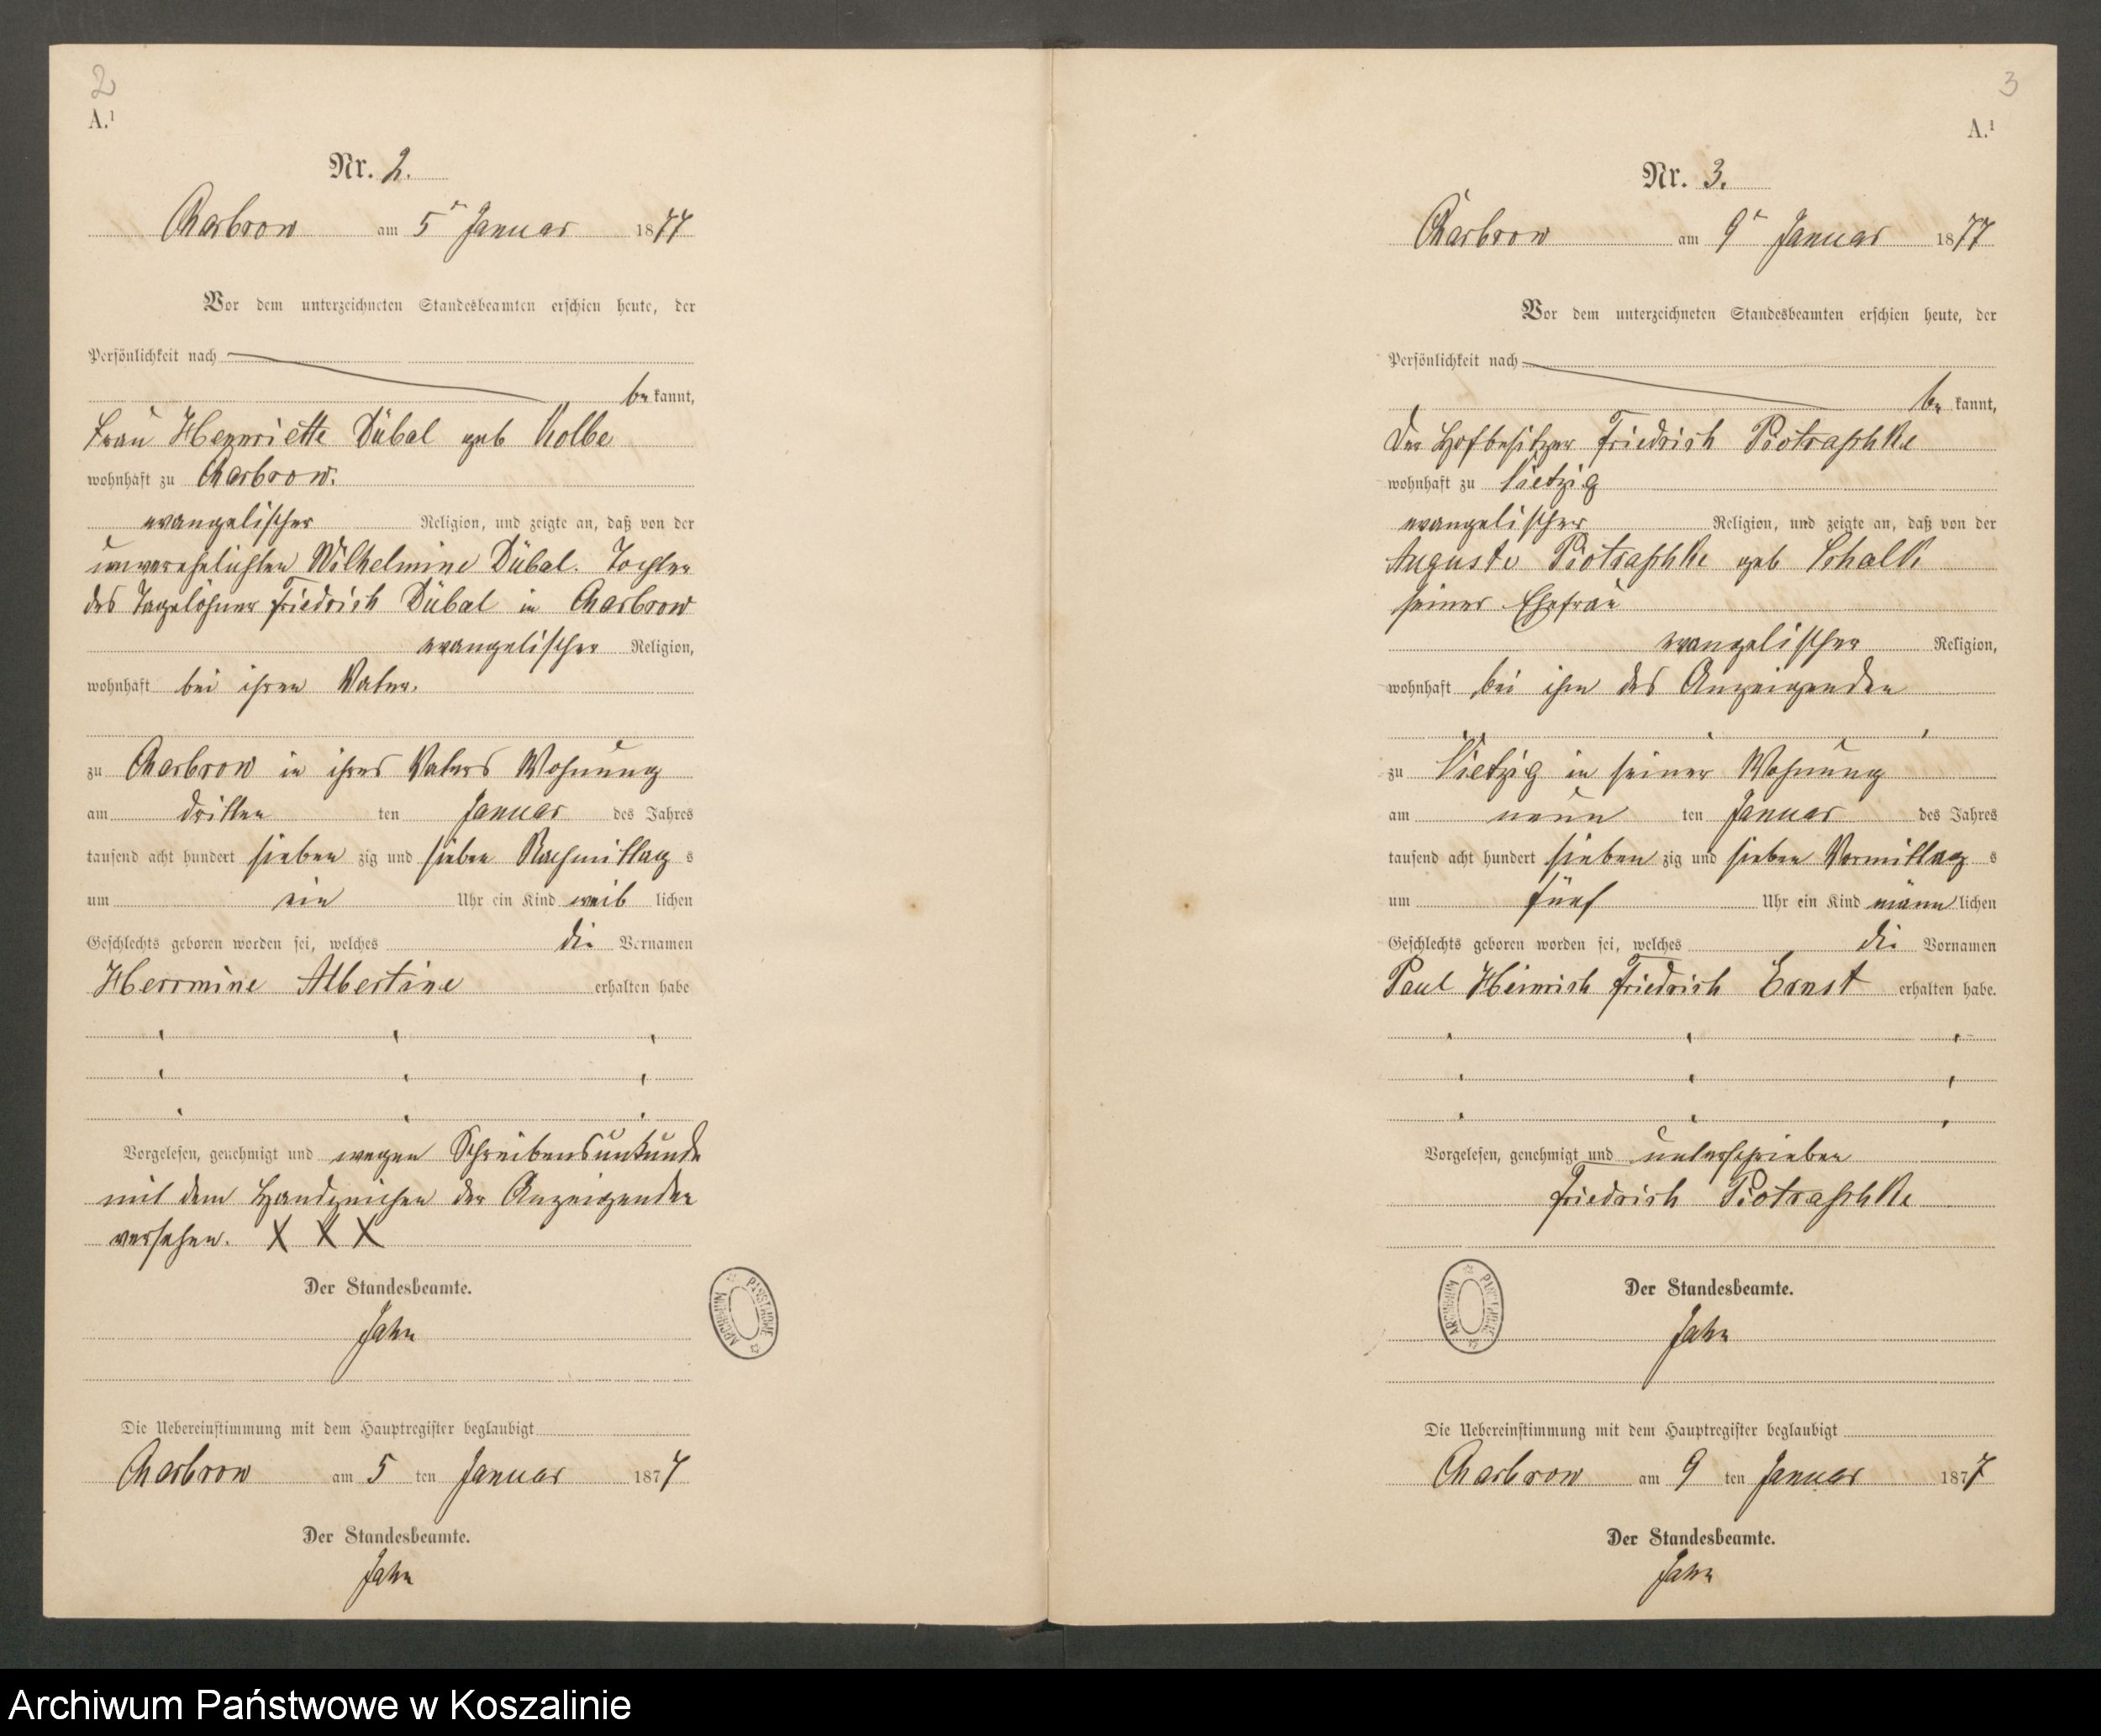 2
A.¹
Nr. 2.
Charbrow am 5ᵗ Januar 1877
Vor dem unterzeichneten Standesbeamten erschien heute, der
Persönlichkeit nach
be kannt,
Frau Hennriette Dübal geb Kolbe
wohnhaft zu Charbrow.
evangelischer Religion, und zeigte an, daß von der
unverehelichten Wilhelmine Dübal. Tochter
des Tagelöhner Friedrich Dübal in Charbrow
evangelischer Religion,
wohnhaft bei ihren Vater.
zu Charbrow in ihres Vaters Wohnung
am dritten ten Januar des Jahres
tausend acht hundert sieben zig und sieben Nachmittag s
um ein Uhr ein Kind weib lichen
Geschlechts geboren worden sei, welches die Vornamen
Herrmine Albertine erhalten habe
Vorgelesen, genehmigt und wegen Schreibensunkunde
mit dem Handzeichen der Anzeigenden
versehen. X X X
Der Standesbeamte.
Jahn
Die Uebereinstimmung mit dem Hauptregister beglaubigt
Charbrow am 5 ten Januar 1877
Der Standesbeamte.
Jahn
ARCHIWUM PAŃSTWOWE
3
A.¹
Nr. 3.
Charbrow am 9ᵗ Januar 1877
Vor dem unterzeichneten Standesbeamten erschien heute, der
Persönlichkeit nach
be kannt,
Der Hofbesitzer Friedrich Piotraschke
wohnhaft zu Vietzig
evangelischer Religion, und zeigte an, daß von der
Auguste Piotraschke geb Schalk
seiner Ehefrau
evangelischer Religion,
wohnhaft bei ihm des Anzeigenden
zu Vietzig in seiner Wohnung
am neun ten Januar des Jahres
tausend acht hundert sieben zig und sieben Vormittag s
um fünf Uhr ein Kind männ lichen
Geschlechts geboren worden sei, welches die Vornamen
Paul Heinrich Friedrich Ernst erhalten habe.
Vorgelesen, genehmigt und unterschrieben
Friedrich Piotraschke
Der Standesbeamte.
Jahn
ARCHIWUM PAŃSTWOWE
Die Uebereinstimmung mit dem Hauptregister beglaubigt
Charbrow am 9 ten Januar 1877
Der Standesbeamte.
Jahn
Archiwum Państwowe w Koszalinie